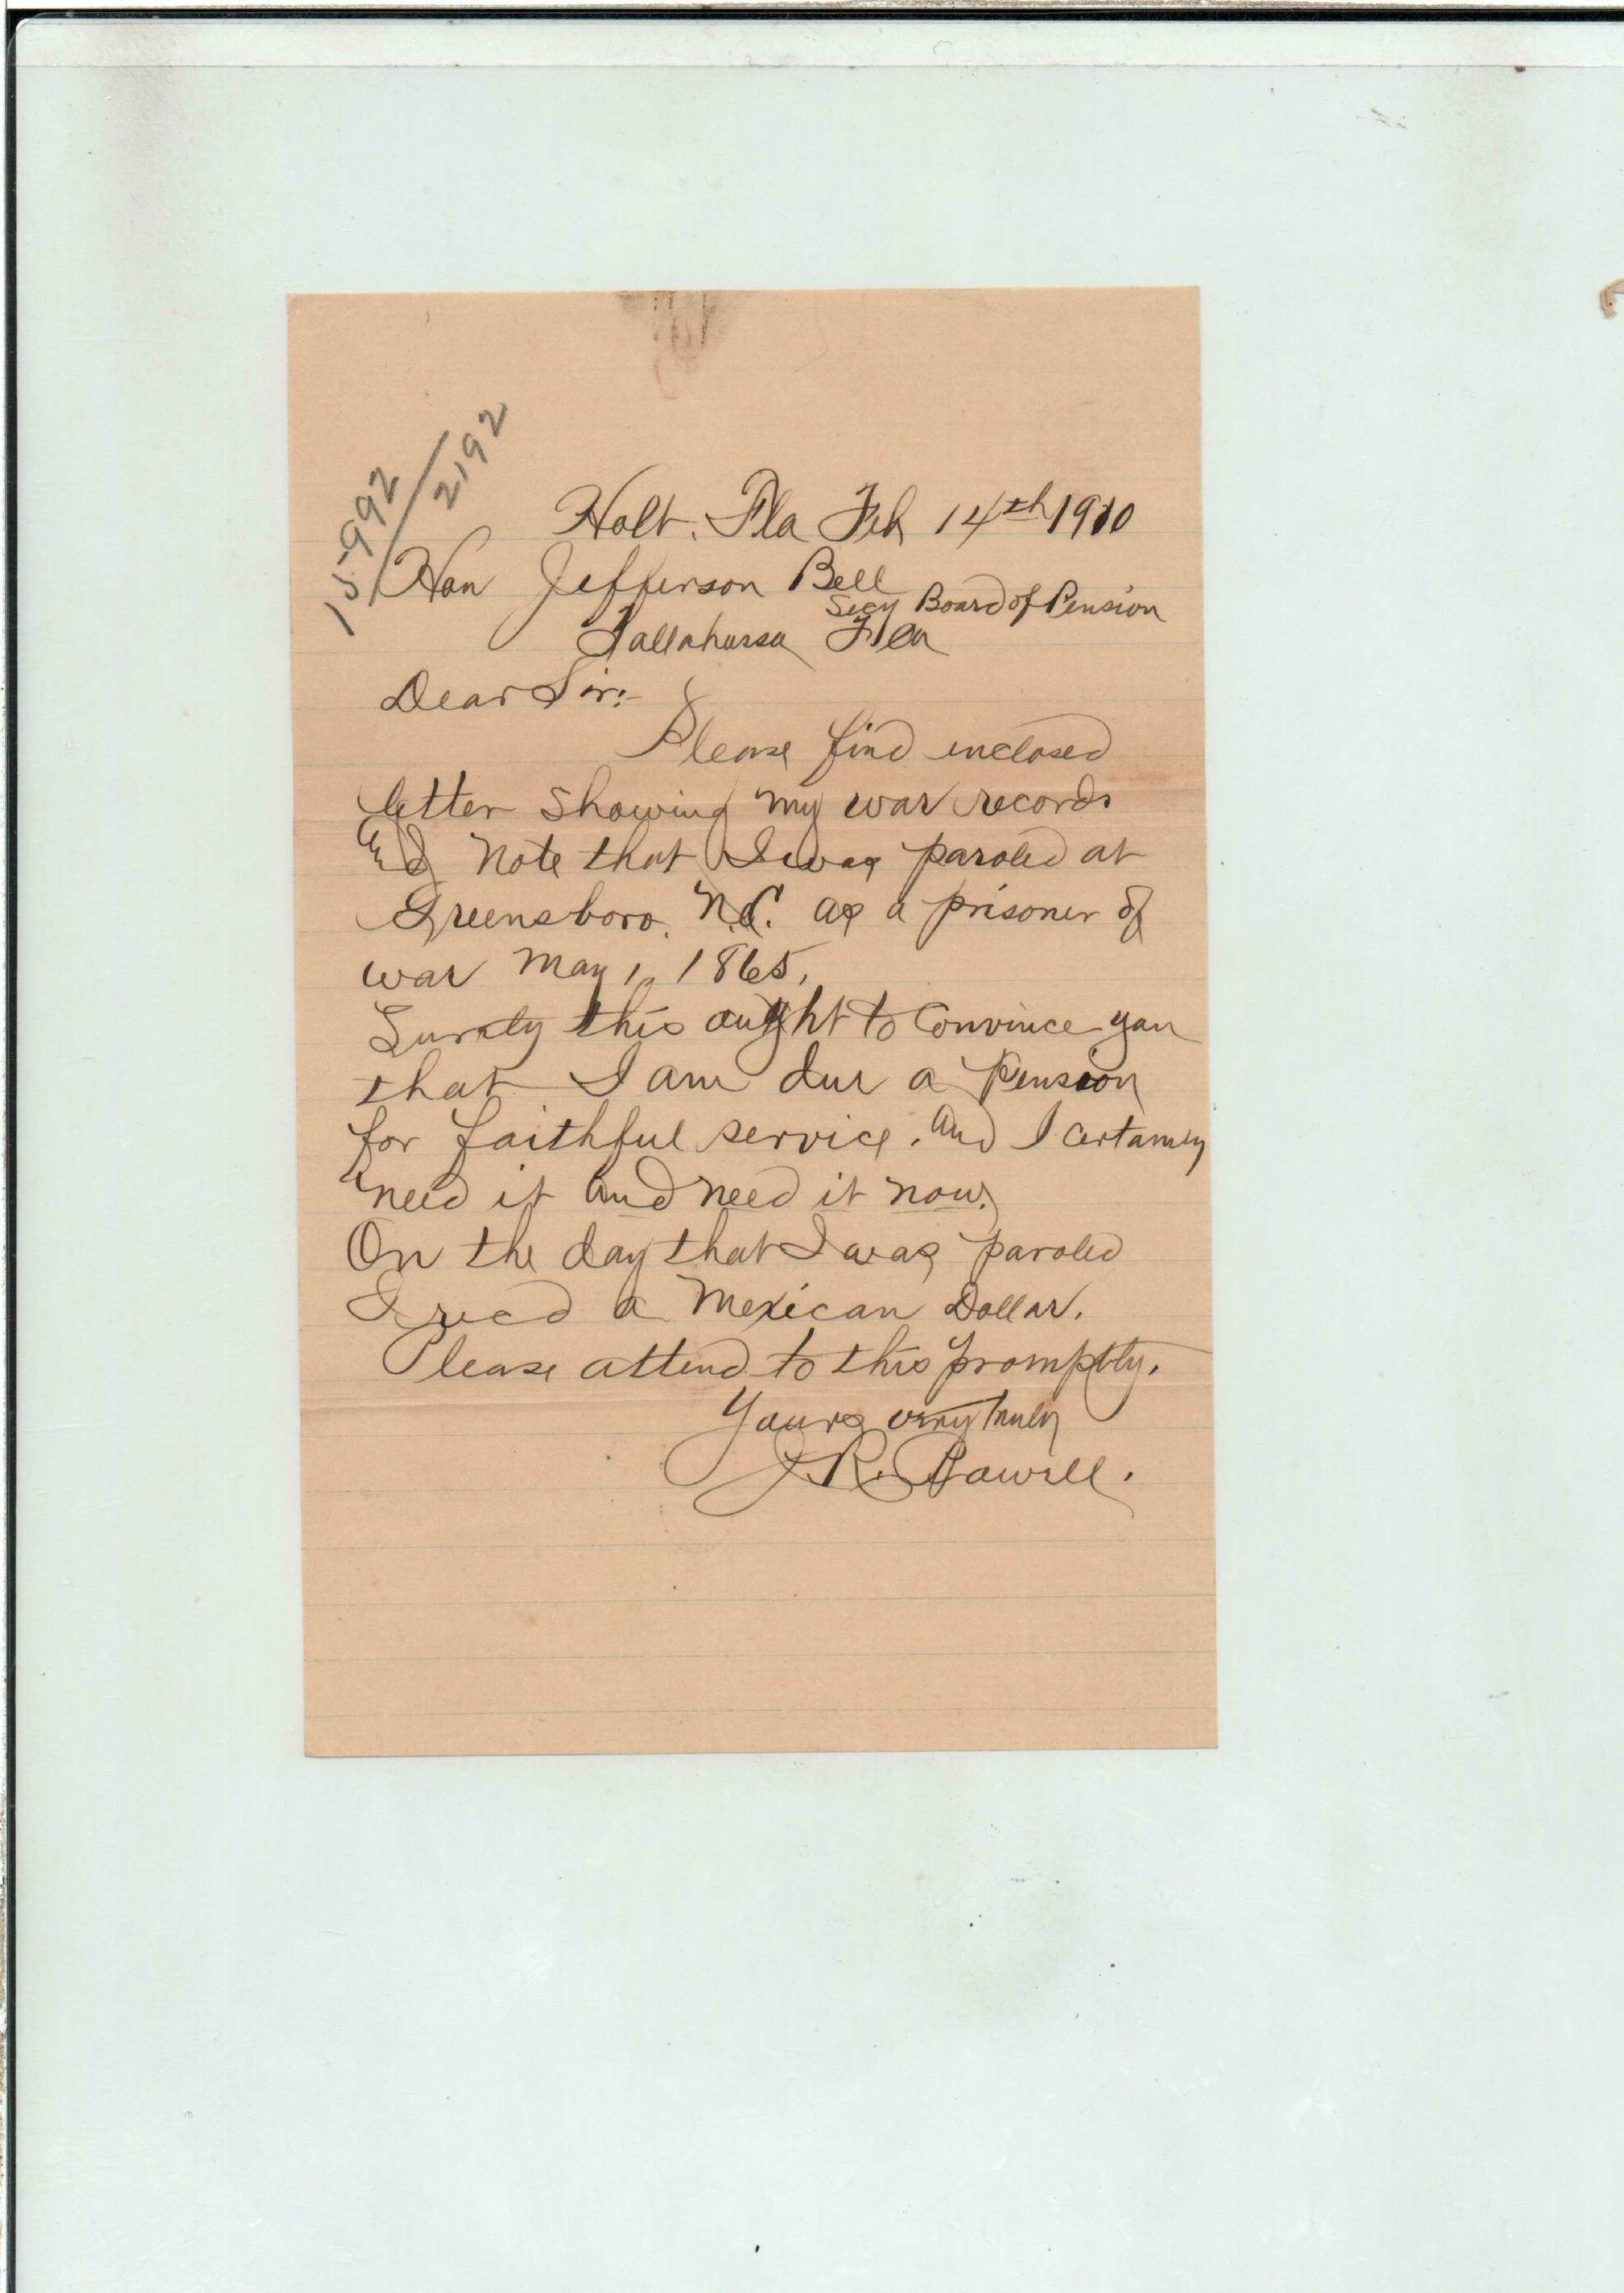 15992 / 2192
Holt. Fla Feb 14th 1910
Hon Jefferson Bell
Secy Board of Pension
Tallahassa Fla
Dear Sir:-
Please find enclosed
letter showing my war records
And Note that I was paroled at
Greensboro. N.C. as a prisoner of
war May 1, 1865.
Surely this aught to Convince you
that I am due a Pension
for faithful service. And I certainly
need it And need it now.
On the day that I was paroled
I recd a Mexican Dollar.
Please attend to this promptly.
Yours very truly
J. R. Powell.